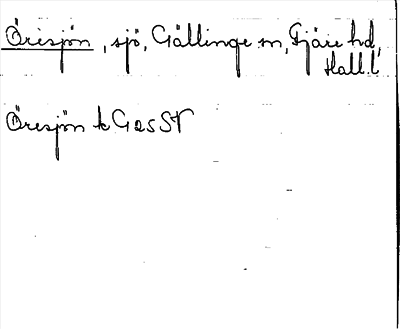 Öresjön, sjö, Gällinge sn, Fjäre hd,
Hall. l
Öresjön k G25 ST